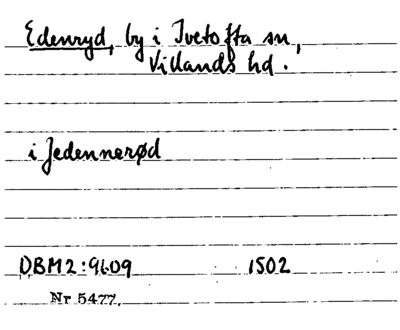 Edenryd, by i Ivetofta sn,
Villands hd.
i Jedennerød
DBM2:9609 1502
Nr 5477.